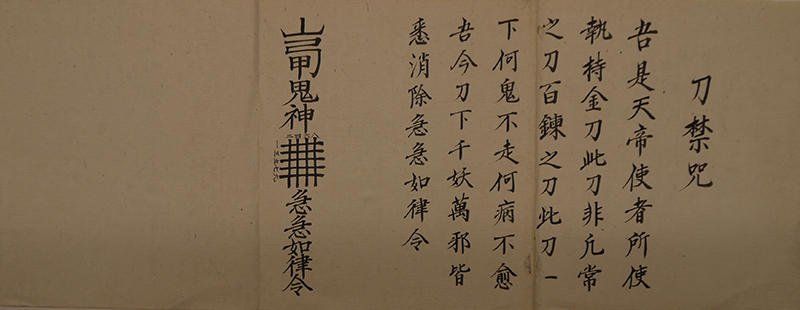 刀禁咒
吾是天帝使者所使
執持金刀此刀非凡常
之刀百鍊之刀此刀一
下何鬼不走何病不愈
吾今刀下千妖萬邪皆
悉消除急急如律令
鬼神
急急如律令